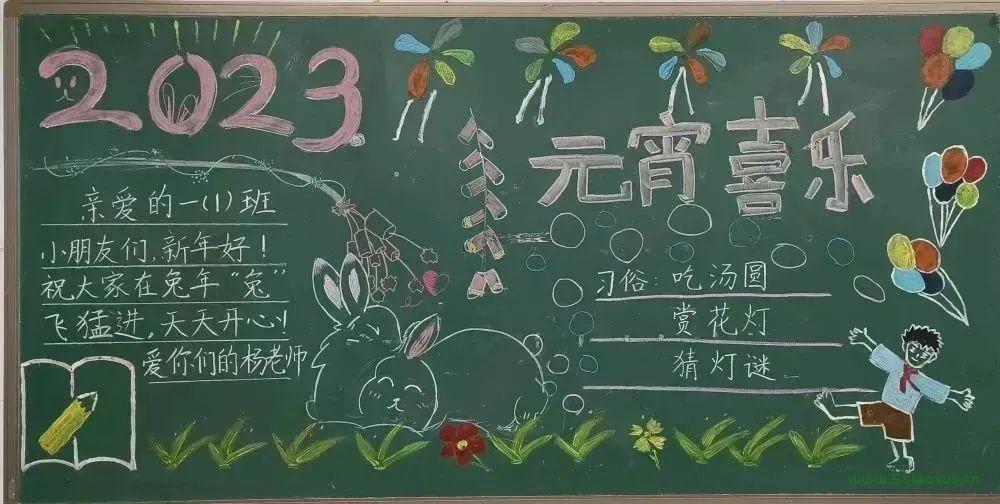 2023
元宵喜乐
亲爱的一(1)班
小朋友们,新年好!
祝大家在兔年“兔”
飞猛进,天天开心!
爱你们的杨老师
习俗:吃汤圆
赏花灯
猜灯谜